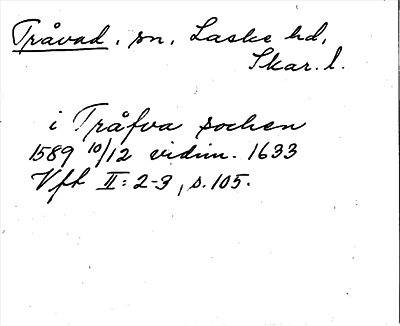 Tråvad, sn, Laske hd,
Skar. l.
i Tråfva sochen
1589 10/12 vidim. 1633
Vfh II: 2-3, s. 105.